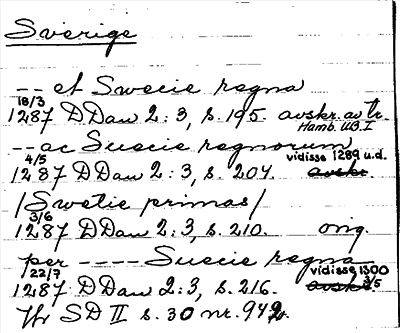 Sverige
-- et Swecie regna
18/3
1287 DDan 2:3, s. 195. avskr. av tr.
Hamb. UB. I
-- ac Suecie regnorum
4/5 vidisse 1289 u.d.
1287 DDan 2:3, s. 204. avskr.
/Swetie primas/
3/6
1287 DDan 2:3, s. 210. orig.
per ---- Suecie regna
22/7 vidisse 1300
1287 DDan 2:3, s. 216. avskr. 3/5
Jfr SD II s. 30 nr. 942.